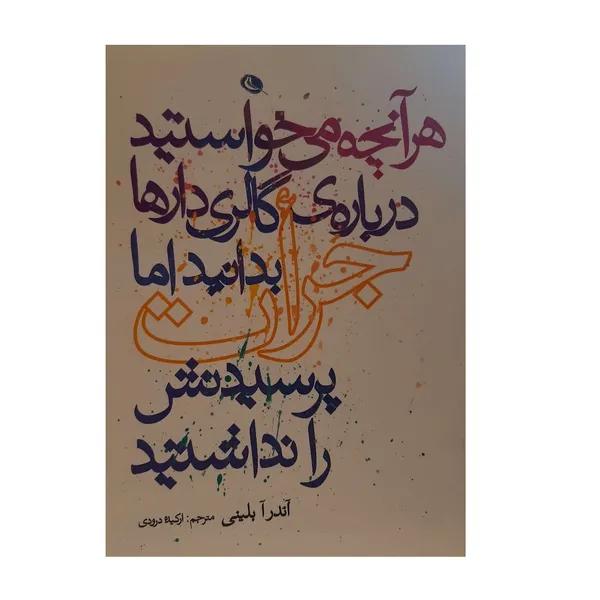 هرآنچه می‌خواستید
درباره‌ی گالری‌دارها
بدانید اما
جرأت
پرسیدنش
را نداشتید
آندرآ بلینی مترجم: ارکیده درودی